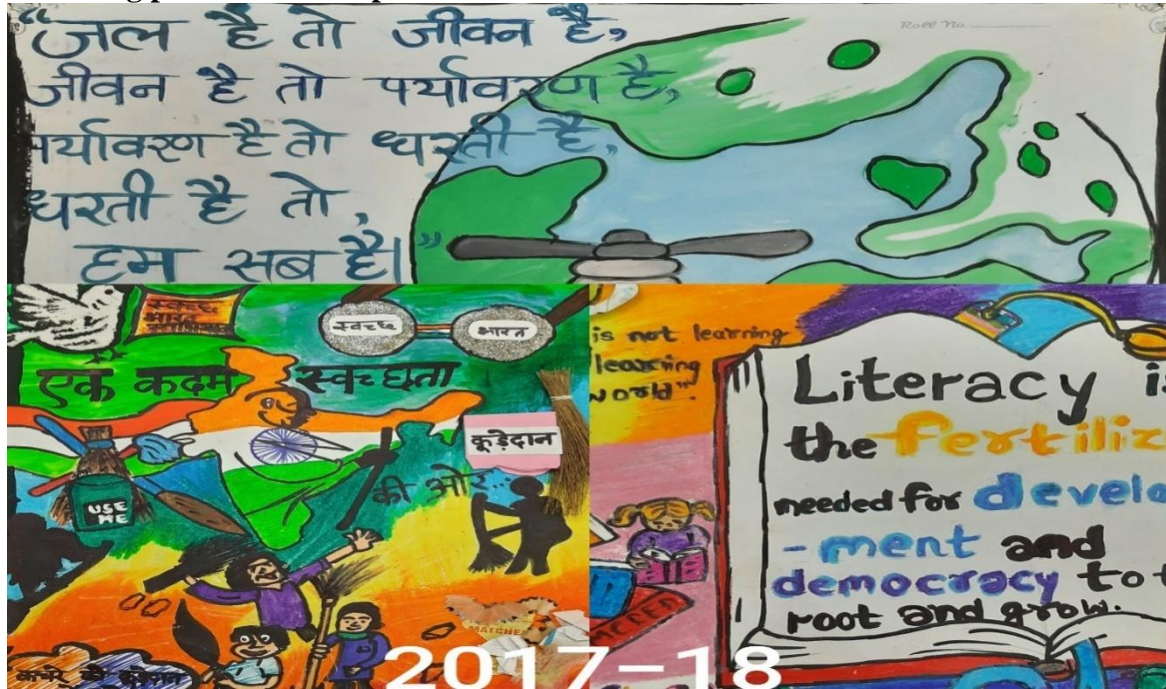 “जल है तो जीवन है,
जीवन है तो पर्यावरण है,
पर्यावरण है तो धरती है,
धरती है तो,
हम सब है।”
Roll No.
स्वच्छ
भारत
स्वच्छ
भारत
एक कदम स्वच्छता
कूड़ेदान
की ओर...
USE
ME
MATCHE
is not learning
learning
world".
Literacy is
the fertiliz
needed for develo
- ment and
democracy to t
root and grow.
2017-18